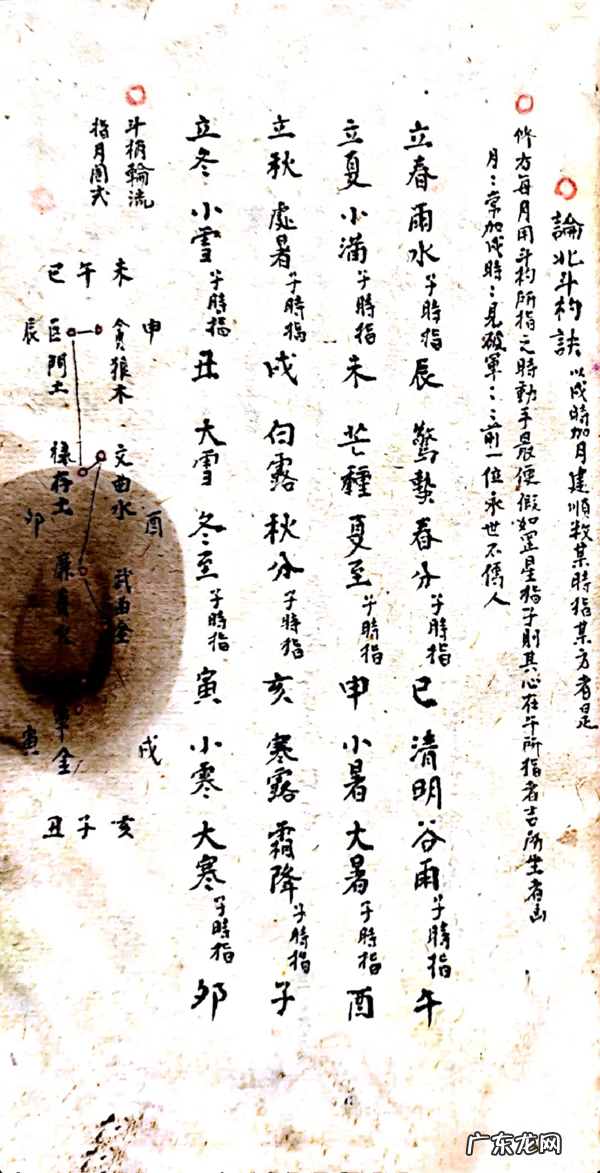 論北斗杓訣 以戌時加月建順数某時指某方者是
修方每月用斗杓所指之時動手最便假如罡星指子則其心在午所指者吉所坐者凶
月〻常加戌時〻見破軍〻〻前一位永世不傳人
立春雨水子時指辰 驚蟄春分子時指巳 清明谷雨子時指午
立夏小滿子時指未 芒種夏至子時指申 小暑大暑子時指酉
立秋處暑子時指戌 白露秋分子時指亥 寒露霜降子時指子
立冬小雪子時指丑 大雪冬至子時指寅 小寒大寒子時指卯
斗柄輪流
指月圖式
未 申 酉 戌 亥
午 貪狼木 文曲水 武曲金 子
巳 巨門土 祿存土 廉貞火 軍金 丑
辰 卯 寅
广东龙网